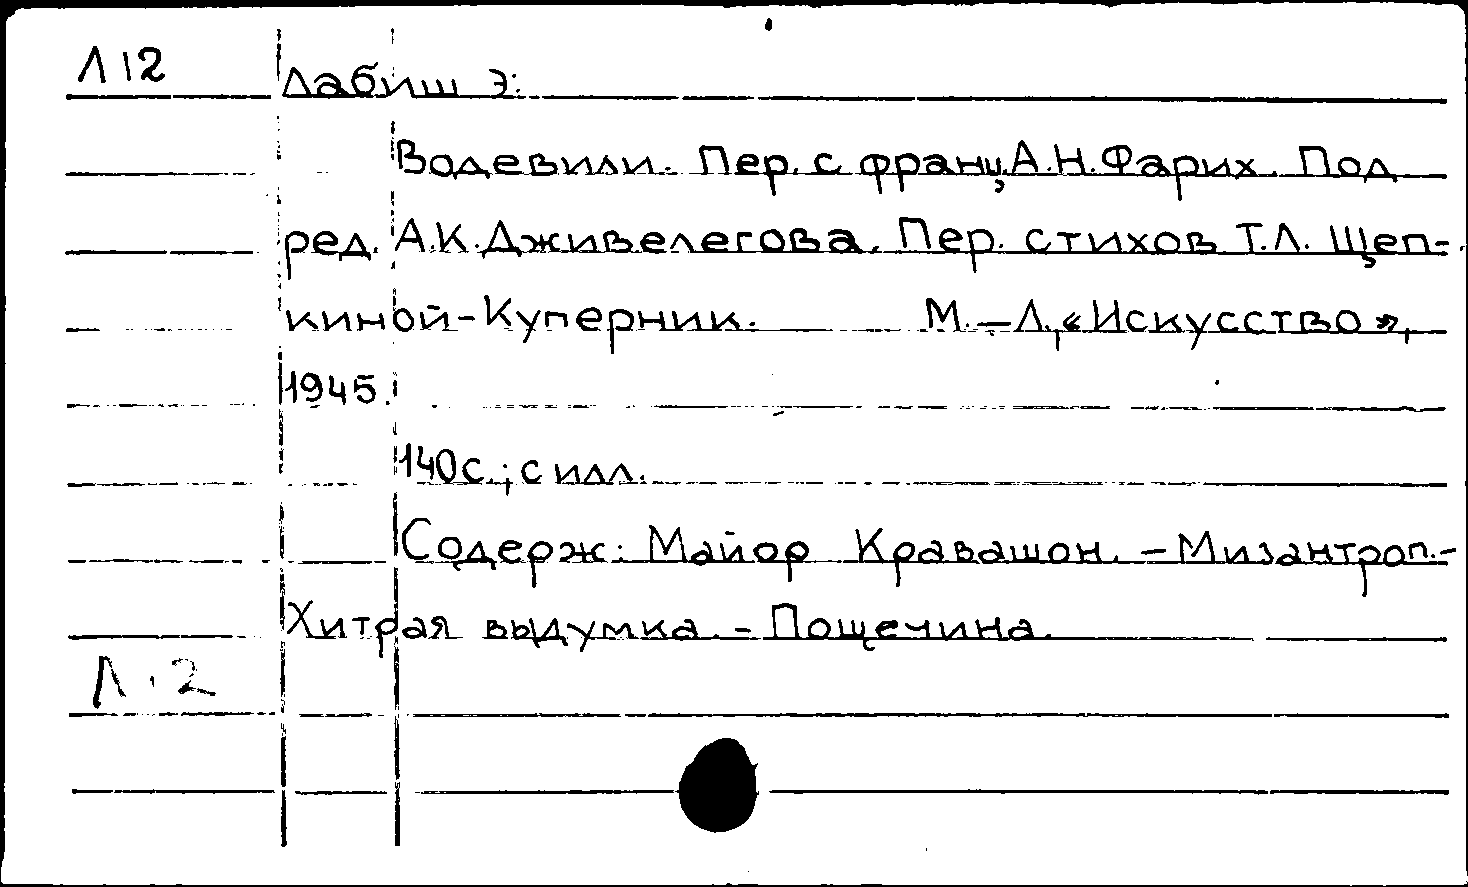 Л12
Лабиш Э.
Водевили. Пер. с франц. А.Н.Фарих. Под
ред. А.К.Дживелегова. Пер. стихов Т.Л. Щеп-
киной-Куперник. М.–Л., «Искусство»,
1945.
140с.; с илл.
Содерж: Майор Кравашон. – Мизантроп.–
Хитрая выдумка. – Пощечина.
Л.2